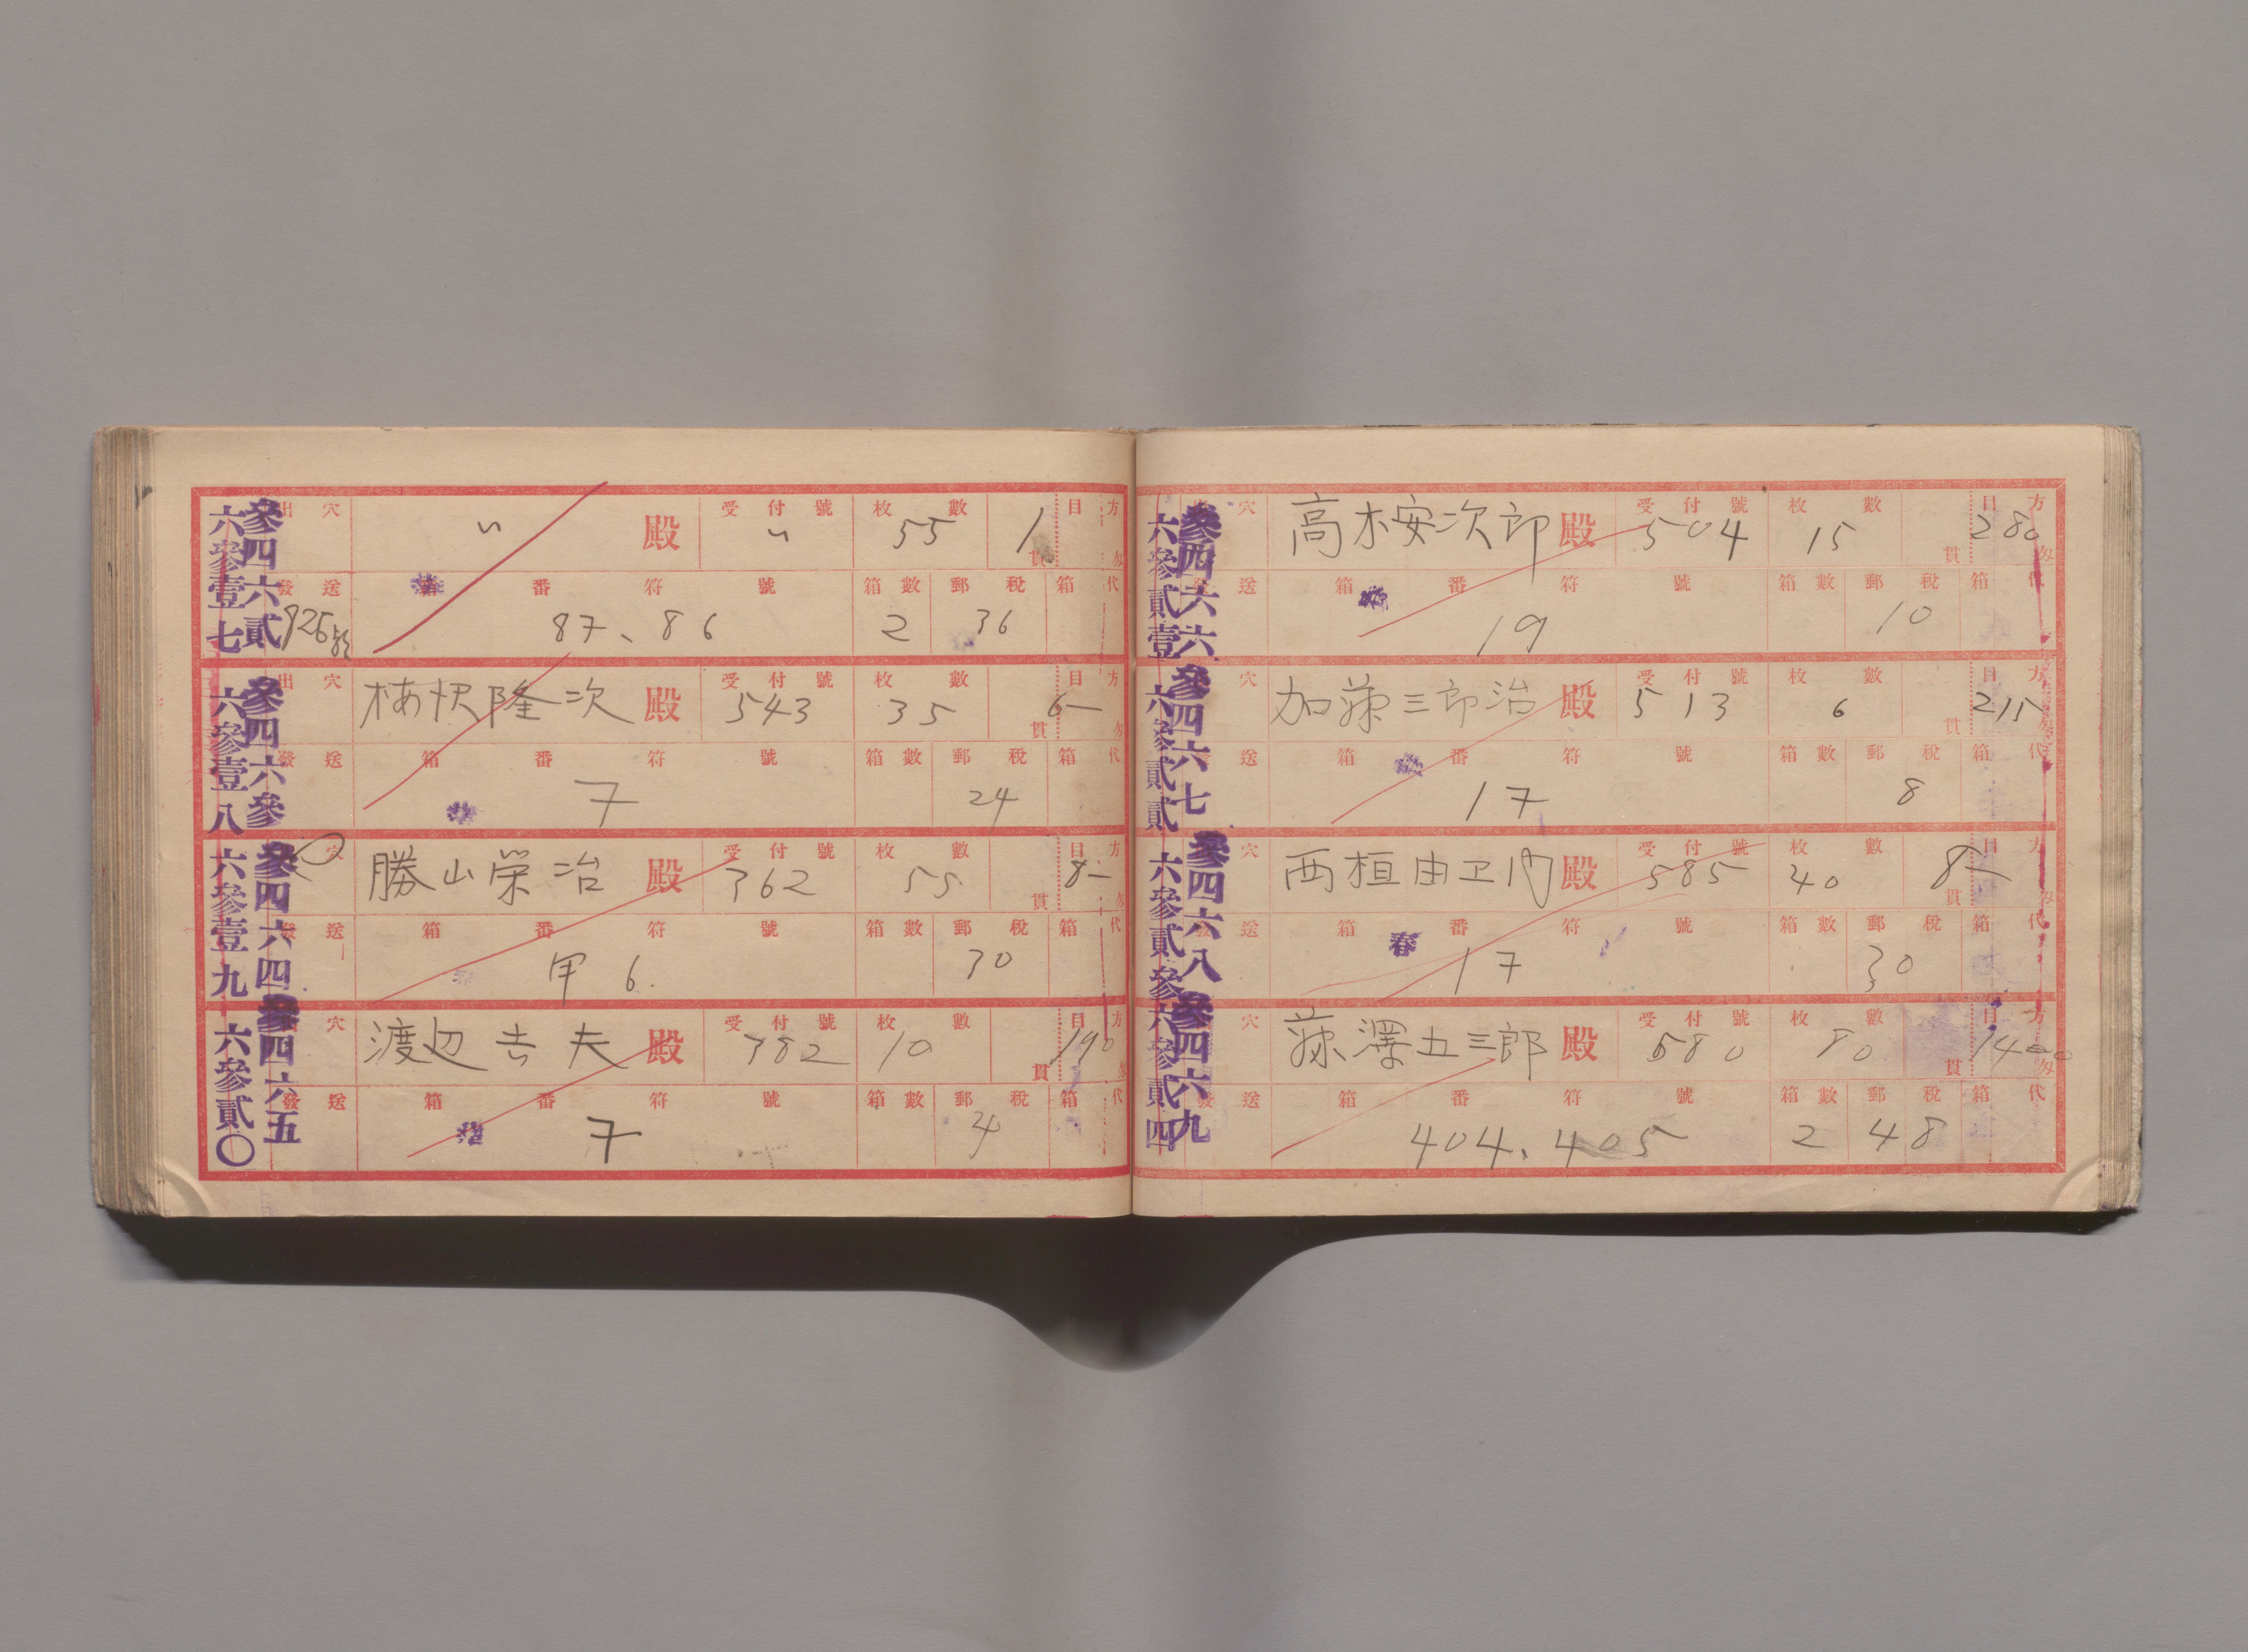 參四六貳
六參壹七
出穴 〃 殿 受付號 〃 枚數 55 目方 1 貫 匁
發送 926 箱番符號 87、86 箱數 2 郵稅 36 箱代
參四六參
六參壹八
出穴 隆次 殿 受付號 543 枚數 35 目方 6– 貫 匁
發送 箱番符號 7 箱數 郵稅 24 箱代
參四六四
六參壹九
穴 勝山榮治 殿 受付號 362 枚數 55 目方 8– 貫 匁
發送 箱番符號 甲6. 箱數 郵稅 30 箱代
參四六五
六參貳〇
出穴 渡辺吉夫 殿 受付號 382 枚數 10 目方 190 貫 匁
發送 箱番符號 7 箱數 郵稅 4 箱代
參四六六
六參貳壹
穴 高木安次郎 殿 受付號 504 枚數 15 目方 280 貫 匁
發送 箱番符號 19 箱數 郵稅 10 箱代
參四六七
六參貳貳
穴 加藤三郎治 殿 受付號 513 枚數 6 目方 215 貫 匁
送 箱番符號 17 箱數 郵稅 8 箱代
參四六八
六參貳參
穴 西垣由卫门 殿 受付號 585 枚數 40 目方 8– 貫 匁
送 箱番符號 春 17 箱數 郵稅 30 箱代
參四六九
六參貳四
穴 藤澤五三郎 殿 受付號 580 枚數 80 目方 1400 貫 匁
發送 箱番符號 404、405 箱數 2 郵稅 48 箱代